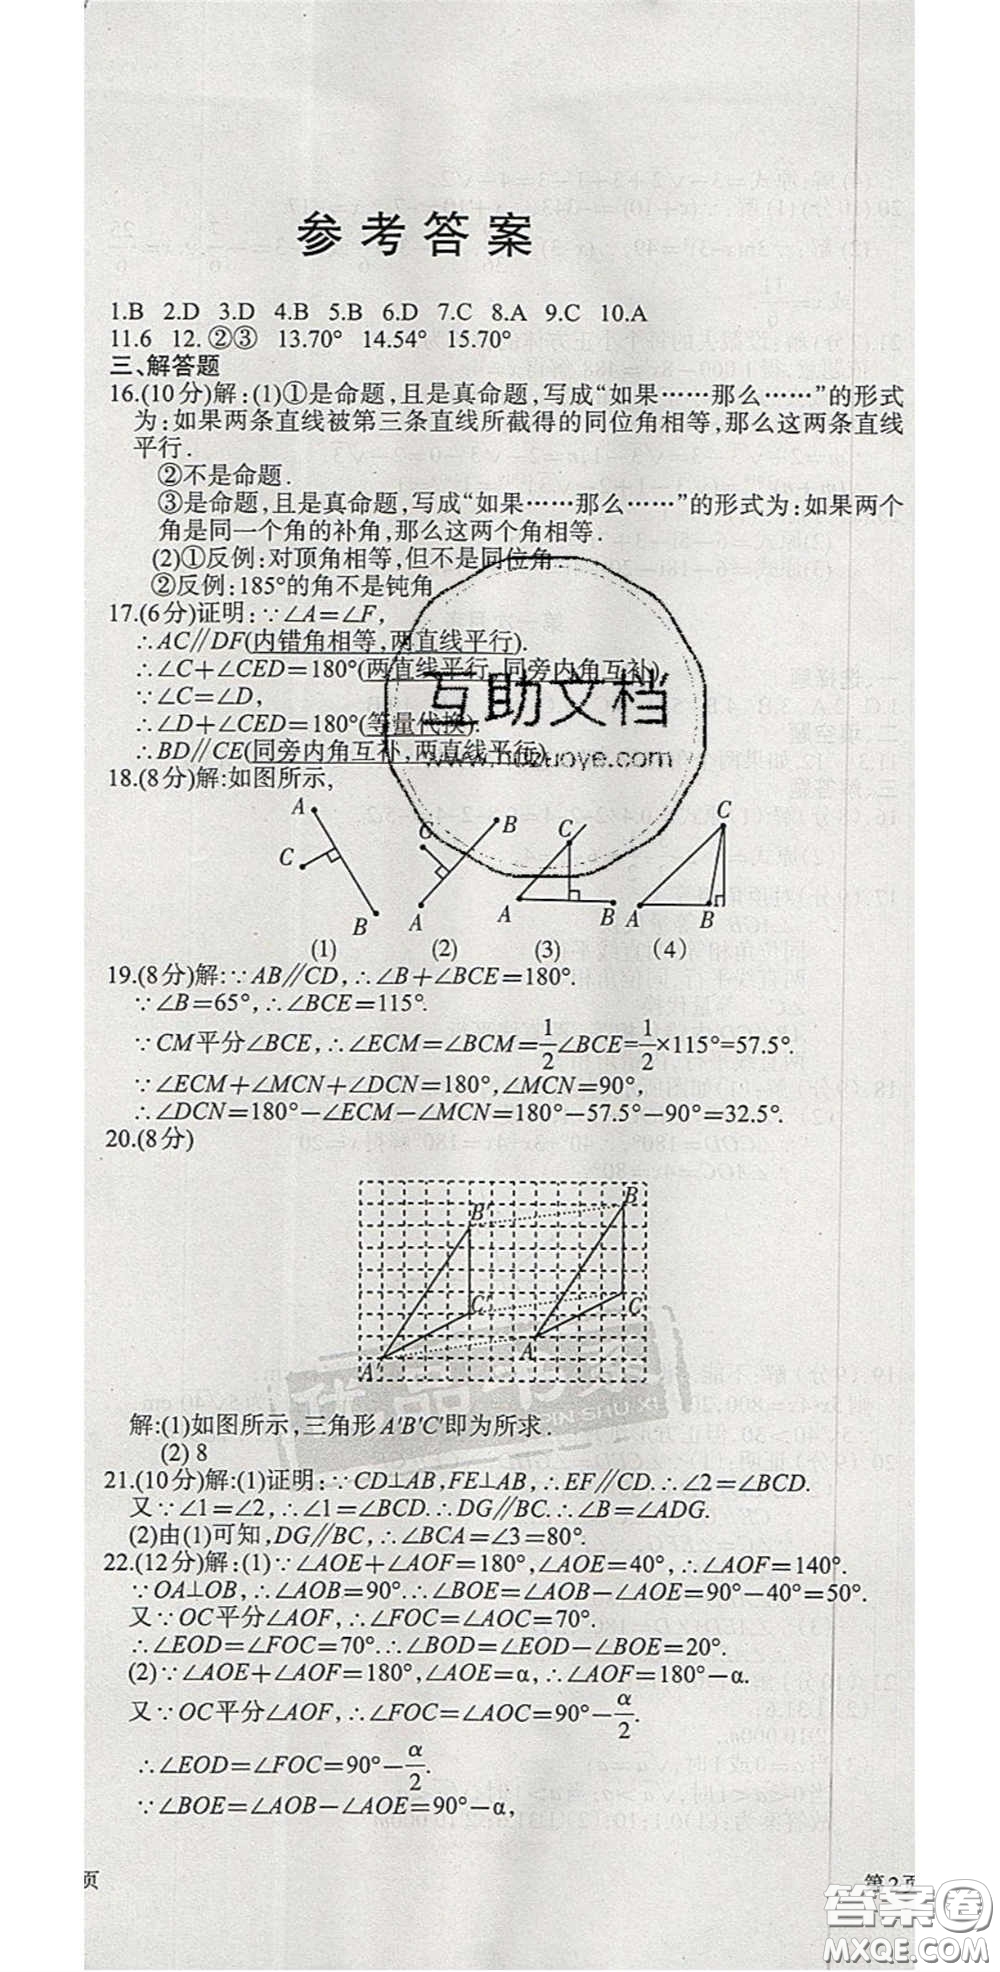 参考答案
1.B 2.D 3.D 4.B 5.B 6.D 7.C 8.A 9.C 10.A
11.6 12. ②③ 13.70° 14.54° 15.70°
三、解答题
16.(10分)解:(1)①是命题,且是真命题,写成“如果……那么……”的形式
为:如果两条直线被第三条直线所截得的同位角相等,那么这两条直线
平行.
②不是命题.
③是命题,且是真命题,写成“如果……那么……”的形式为:如果两个
角是同一个角的补角,那么这两个角相等.
(2)①反例:对顶角相等,但不是同位角
②反例:185°的角不是钝角
17.(6分)证明:∵∠A=∠F,
∴AC∥DF(内错角相等,两直线平行).
∴∠C+∠CED=180°(两直线平行,同旁内角互补).
∵∠C=∠D,
∴∠D+∠CED=180°(等量代换).
∴BD∥CE(同旁内角互补,两直线平行)
互助文档
18.(8分)解:如图所示,
A C B
C A B
C A B
C A B
(1) (2) (3) (4)
19.(8分)解:∵AB∥CD,∴∠B+∠BCE=180°.
∵∠B=65°,∴∠BCE=115°.
∵CM平分∠BCE,∴∠ECM=∠BCM=1/2∠BCE=1/2×115°=57.5°.
∵∠ECM+∠MCN+∠DCN=180°,∠MCN=90°,
∴∠DCN=180°−∠ECM−∠MCN=180°−57.5°−90°=32.5°.
20.(8分)
B' B
C' C
A' A
解:(1)如图所示,三角形A'B'C'即为所求.
(2) 8
21.(10分)解:(1)证明:∵CD⊥AB,FE⊥AB,∴EF∥CD.∴∠2=∠BCD.
又∵∠1=∠2,∴∠1=∠BCD.∴DG∥BC.∴∠B=∠ADG.
(2)由(1)可知,DG∥BC,∴∠BCA=∠3=80°.
22.(12分)解:(1)∵∠AOE+∠AOF=180°,∠AOE=40°,∴∠AOF=140°.
∵OA⊥OB,∴∠AOB=90°.∴∠BOE=∠AOB−∠AOE=90°−40°=50°.
又∵OC平分∠AOF,∴∠FOC=∠AOC=70°.
∴∠EOD=∠FOC=70°.∴∠BOD=∠EOD−∠BOE=20°.
(2)∵∠AOE+∠AOF=180°,∠AOE=α,∴∠AOF=180°−α.
又∵OC平分∠AOF,∴∠FOC=∠AOC=90°−α/2.
∴∠EOD=∠FOC=90°−α/2.
∵∠BOE=∠AOB−∠AOE=90°−α,
页
第2页
答案圈
MXQE.COM